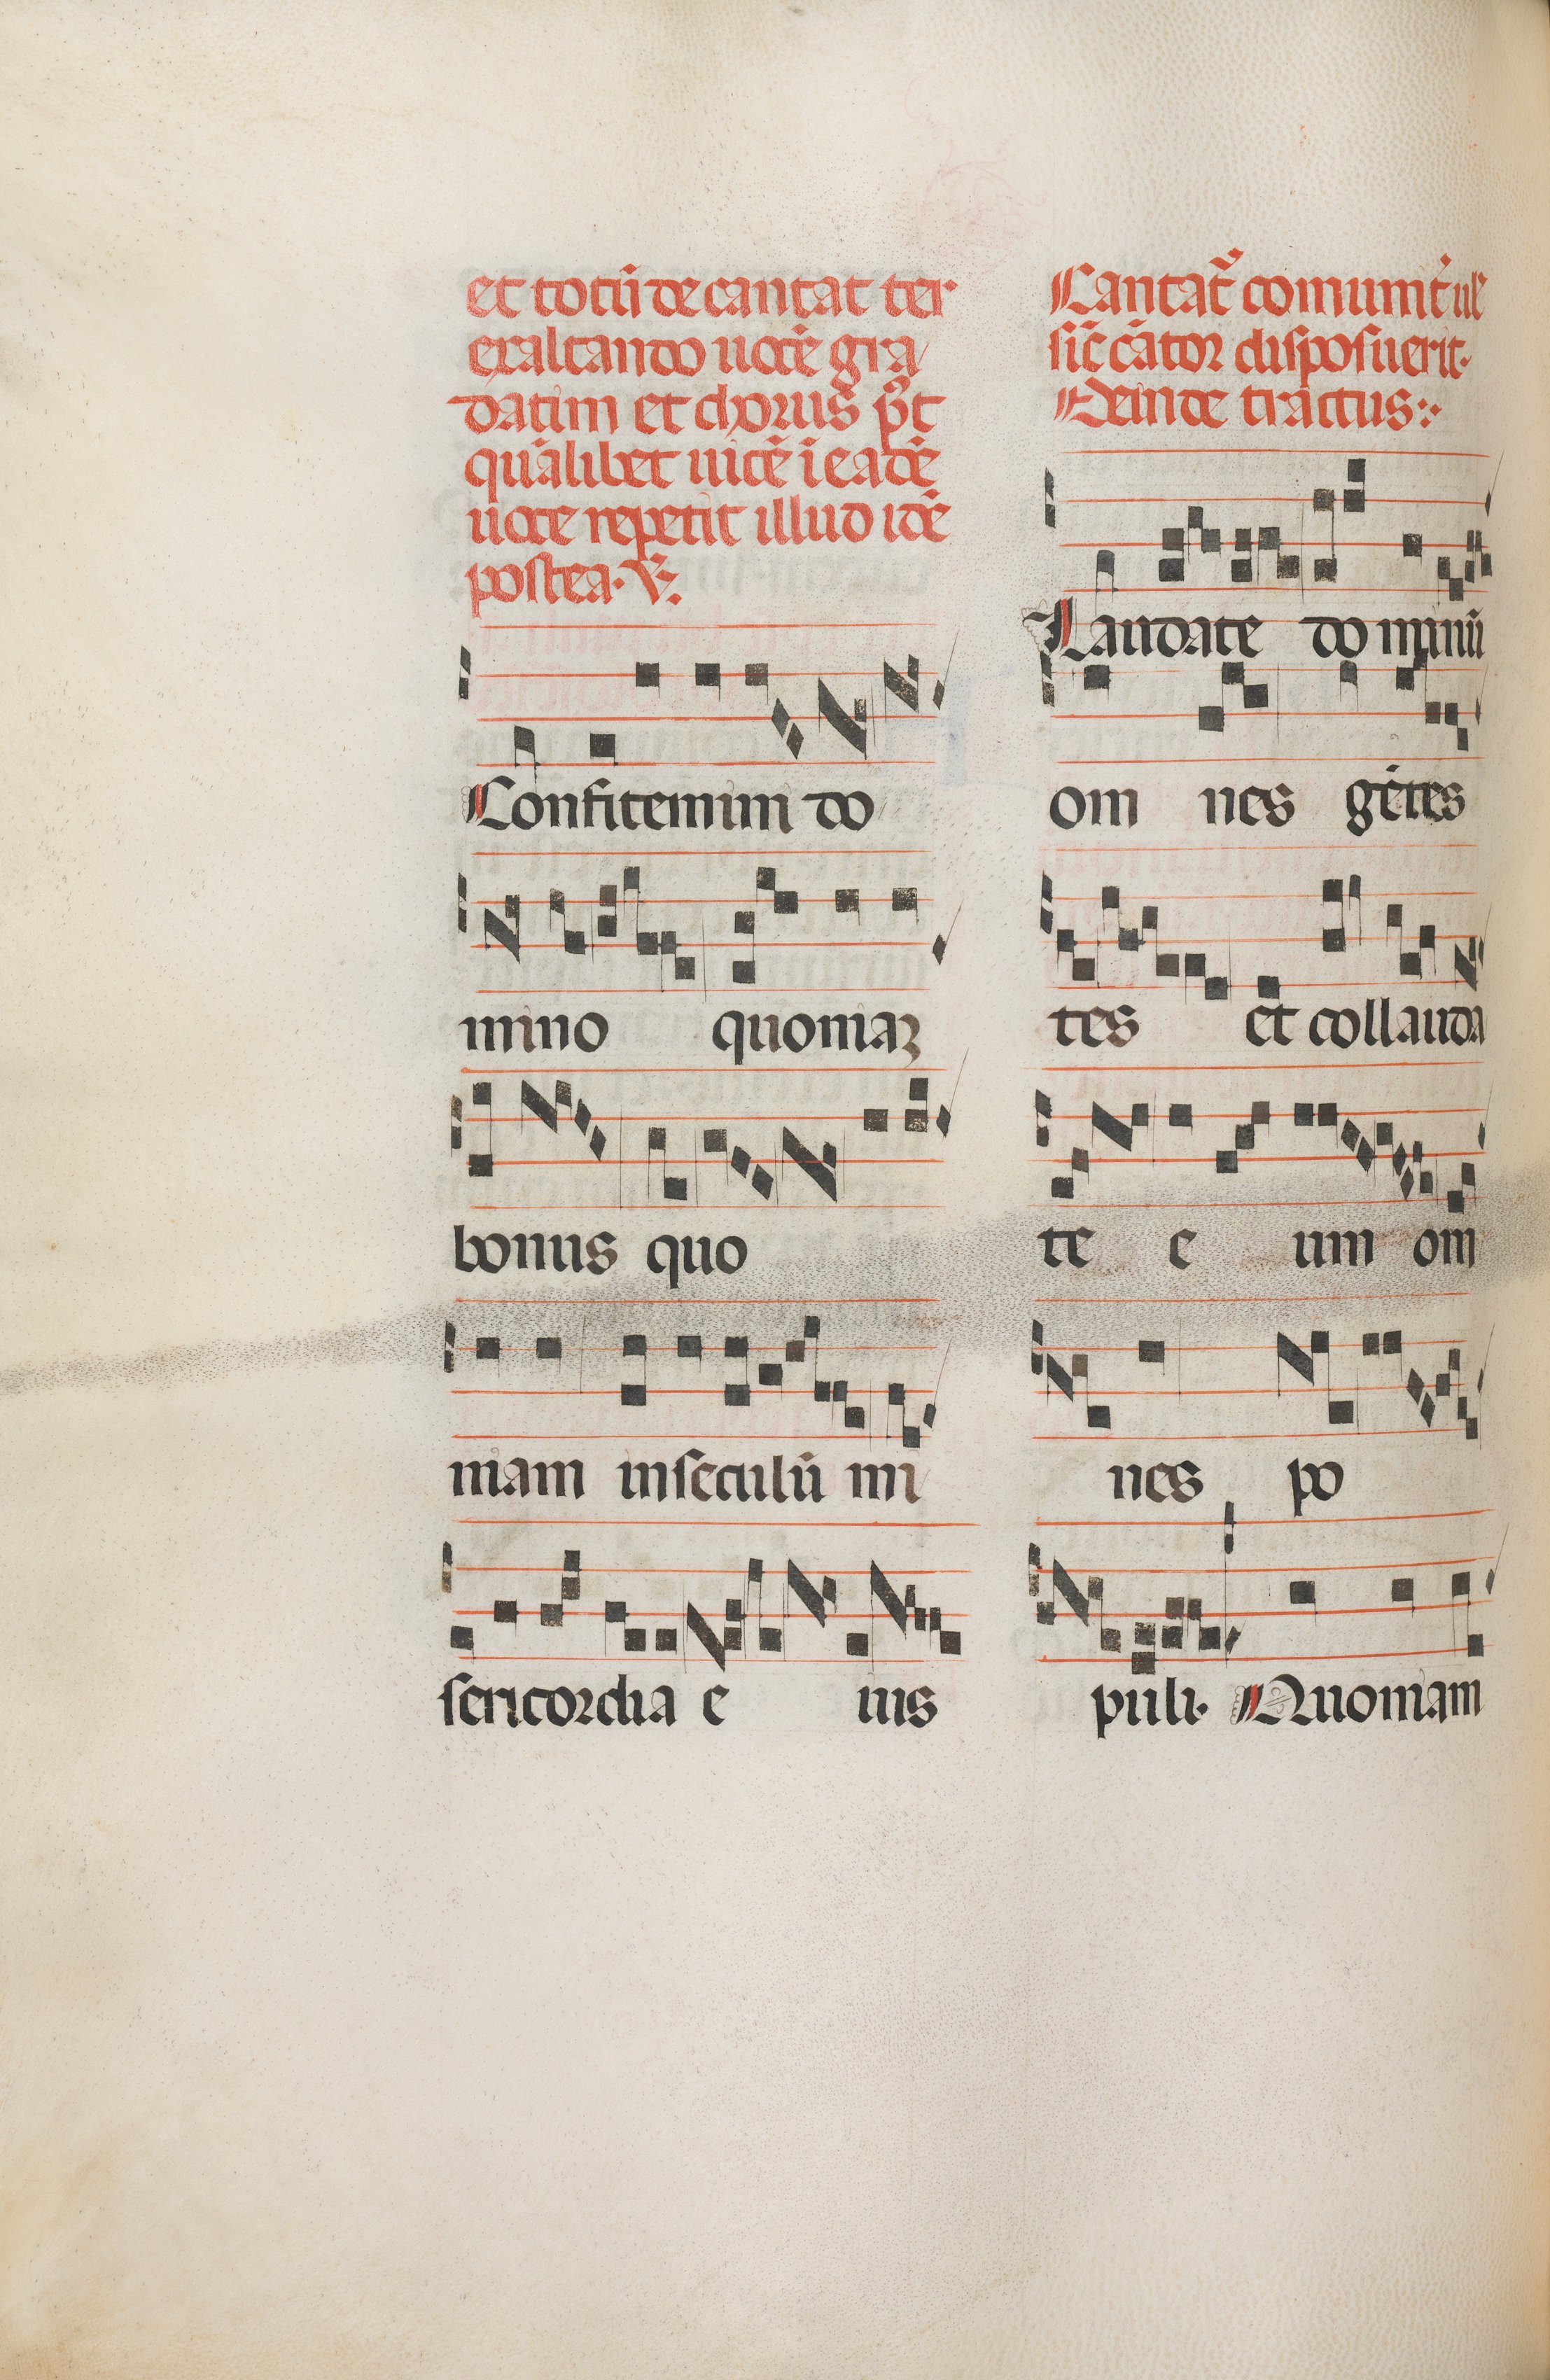 et totū decantat ter
exaltando uocē gra
datim et chorus p̄t
quālibet uicē ī eadē
uoce repetit illud idē
postea. ℣.
Confitemini do
mino quoniaꝫ
bonus quo
niam inseculū mi
sericordia e ius
Cantat̄ comunit̄ uł
sic̄ cātor disposuerit.
Deinde tractus:·
Laudate do minū
om nes gētes
tes et collauda
te e um om
nes po
puli. Quoniam